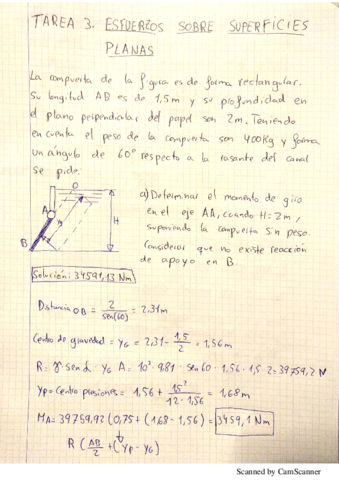 TAREA 3. ESFUERZOS SOBRE SUPERFICIES
PLANAS
La compuerta de la figura es de forma rectangular.
Su longitud AB es de 1,5m y su profundidad en
el plano perpendicular del papel son 2m. Teniendo
en cuenta el peso de la compuerta son 400Kg y forma
un ángulo de 60° respecto a la rasante del canal
se pide:
O
A
H
B
a) Determinar el momento de giro
en el eje AA, cuando H=2m,
suponiendo la compuerta sin peso.
Considerar que no existe reacción
de apoyo en B.
Solución: 34591,13 Nm
Distancia OB = 2/sen(60) = 2.31m
Centro de gravedad = yG = 2,31 - 1,5/2 = 1,56m
R = γ sen α yG A = 10³ · 9.81 · sen 60 · 1.56 · 1.5 · 2 = 39759,2 N
yp = Centro presiones = 1,56 + 1,5²/12·1,56 = 1,68m
MA = 39759,92 (0,75 + (1,68 - 1,56) = 3459,1 Nm
R (AB/2 + (yp - yG)
Scanned by CamScanner